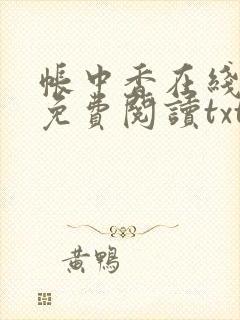 帳中香在綫
免費閱讀txt
黃鴨